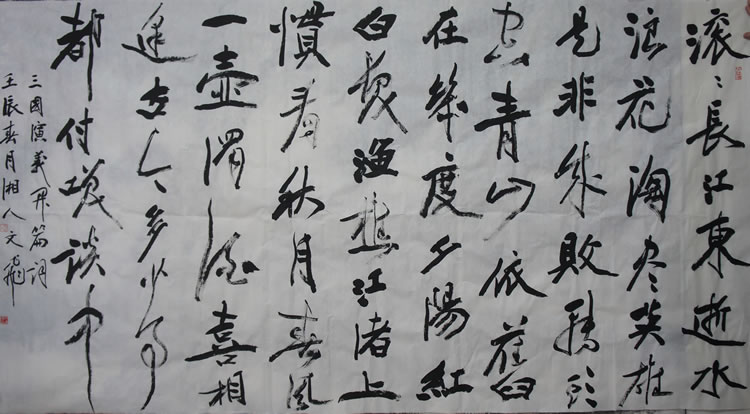 滚〻長江東逝水
浪花淘尽英雄
是非成敗轉头
空青山依舊
在幾度夕陽紅
白髮漁樵江渚上
慣看秋月春風
一壺濁酒喜相
逢古今多少事
都付咲談中
三國演義開篇詞
壬辰春月湘人文飛